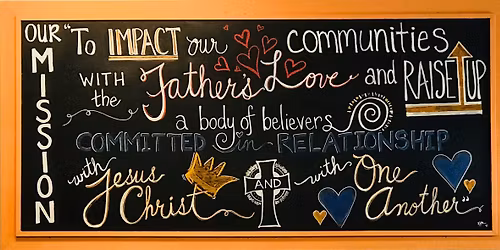 OUR MISSION
"To IMPACT our communities
with the Father's Love and RAISE UP
a body of believers
COMMITTED in RELATIONSHIP
with Jesus Christ AND with One Another"